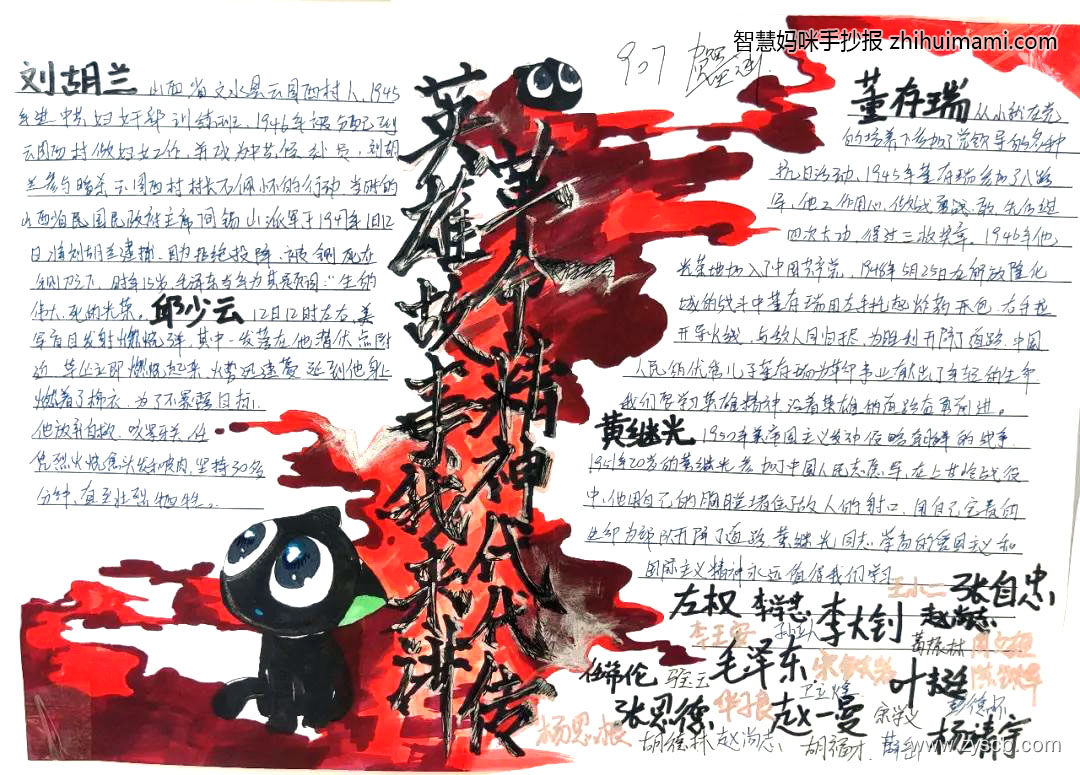 智慧妈咪手抄报 zhihuimami.com
907
英雄故事我来讲
革命精神代代传
刘胡兰 山西省文水县云周西村人,1945
年进中共妇女干部训练班,1946年被分配到
云周西村做妇女工作,并成为中共候补党员,刘胡
兰参与暗杀云周西村村长石佩怀的行动 当时的
山西省民国民政府主席阎锡山派军于1947年1月12
日将刘胡兰逮捕,因为拒绝投降,被铡死在
铡刀下,时年15岁,毛泽东为其题词:“生的
伟大,死的光荣。
邱少云 12日12时左右,美
军盲目发射燃烧弹,其中一发落在他潜伏点附
近,草丛立即燃烧起来,火势迅速蔓延到他身上
燃着了棉衣,为了不暴露目标,
他放弃自救,咬紧牙关,任
凭烈火烧焦头发和皮肉,坚持30多
分钟,直至壮烈牺牲。
董存瑞 从小就在党
的培养下参加了党领导的各种
抗日活动,1945年董存瑞参加了八路
军,他工作用心,作战勇敢,先后立
四次大功,得过三枚奖章,1946年他
光荣地加入了中国共产党,1948年5月25日在解放隆化
城的战斗中董存瑞用左手托起炸药包,右手拉
开导火线,与敌人同归于尽,为胜利开辟了道路,中国
人民的优秀儿子董存瑞为革命事业献出了年轻的生命
我们要学习英雄精神,沿着英雄的道路奋勇前进。
黄继光 1950年美帝国主义发动侵略朝鲜的战争,
1951年20岁的黄继光参加了中国人民志愿军,在上甘岭战役
中,他用自己的胸膛堵住了敌人的射口,用自己宝贵的
生命为部队开辟了道路 黄继光同志 崇高的爱国主义和
国际主义精神永远值得我们学习
王小二 张自忠
左权 李兆麟 李大钊 赵尚志
任常伦 毛泽东 叶挺
彭德怀
张思德 赵一曼 宋学义 杨靖宇
杨思根 胡德林 赵尚志 胡福才
www.zyscb.com